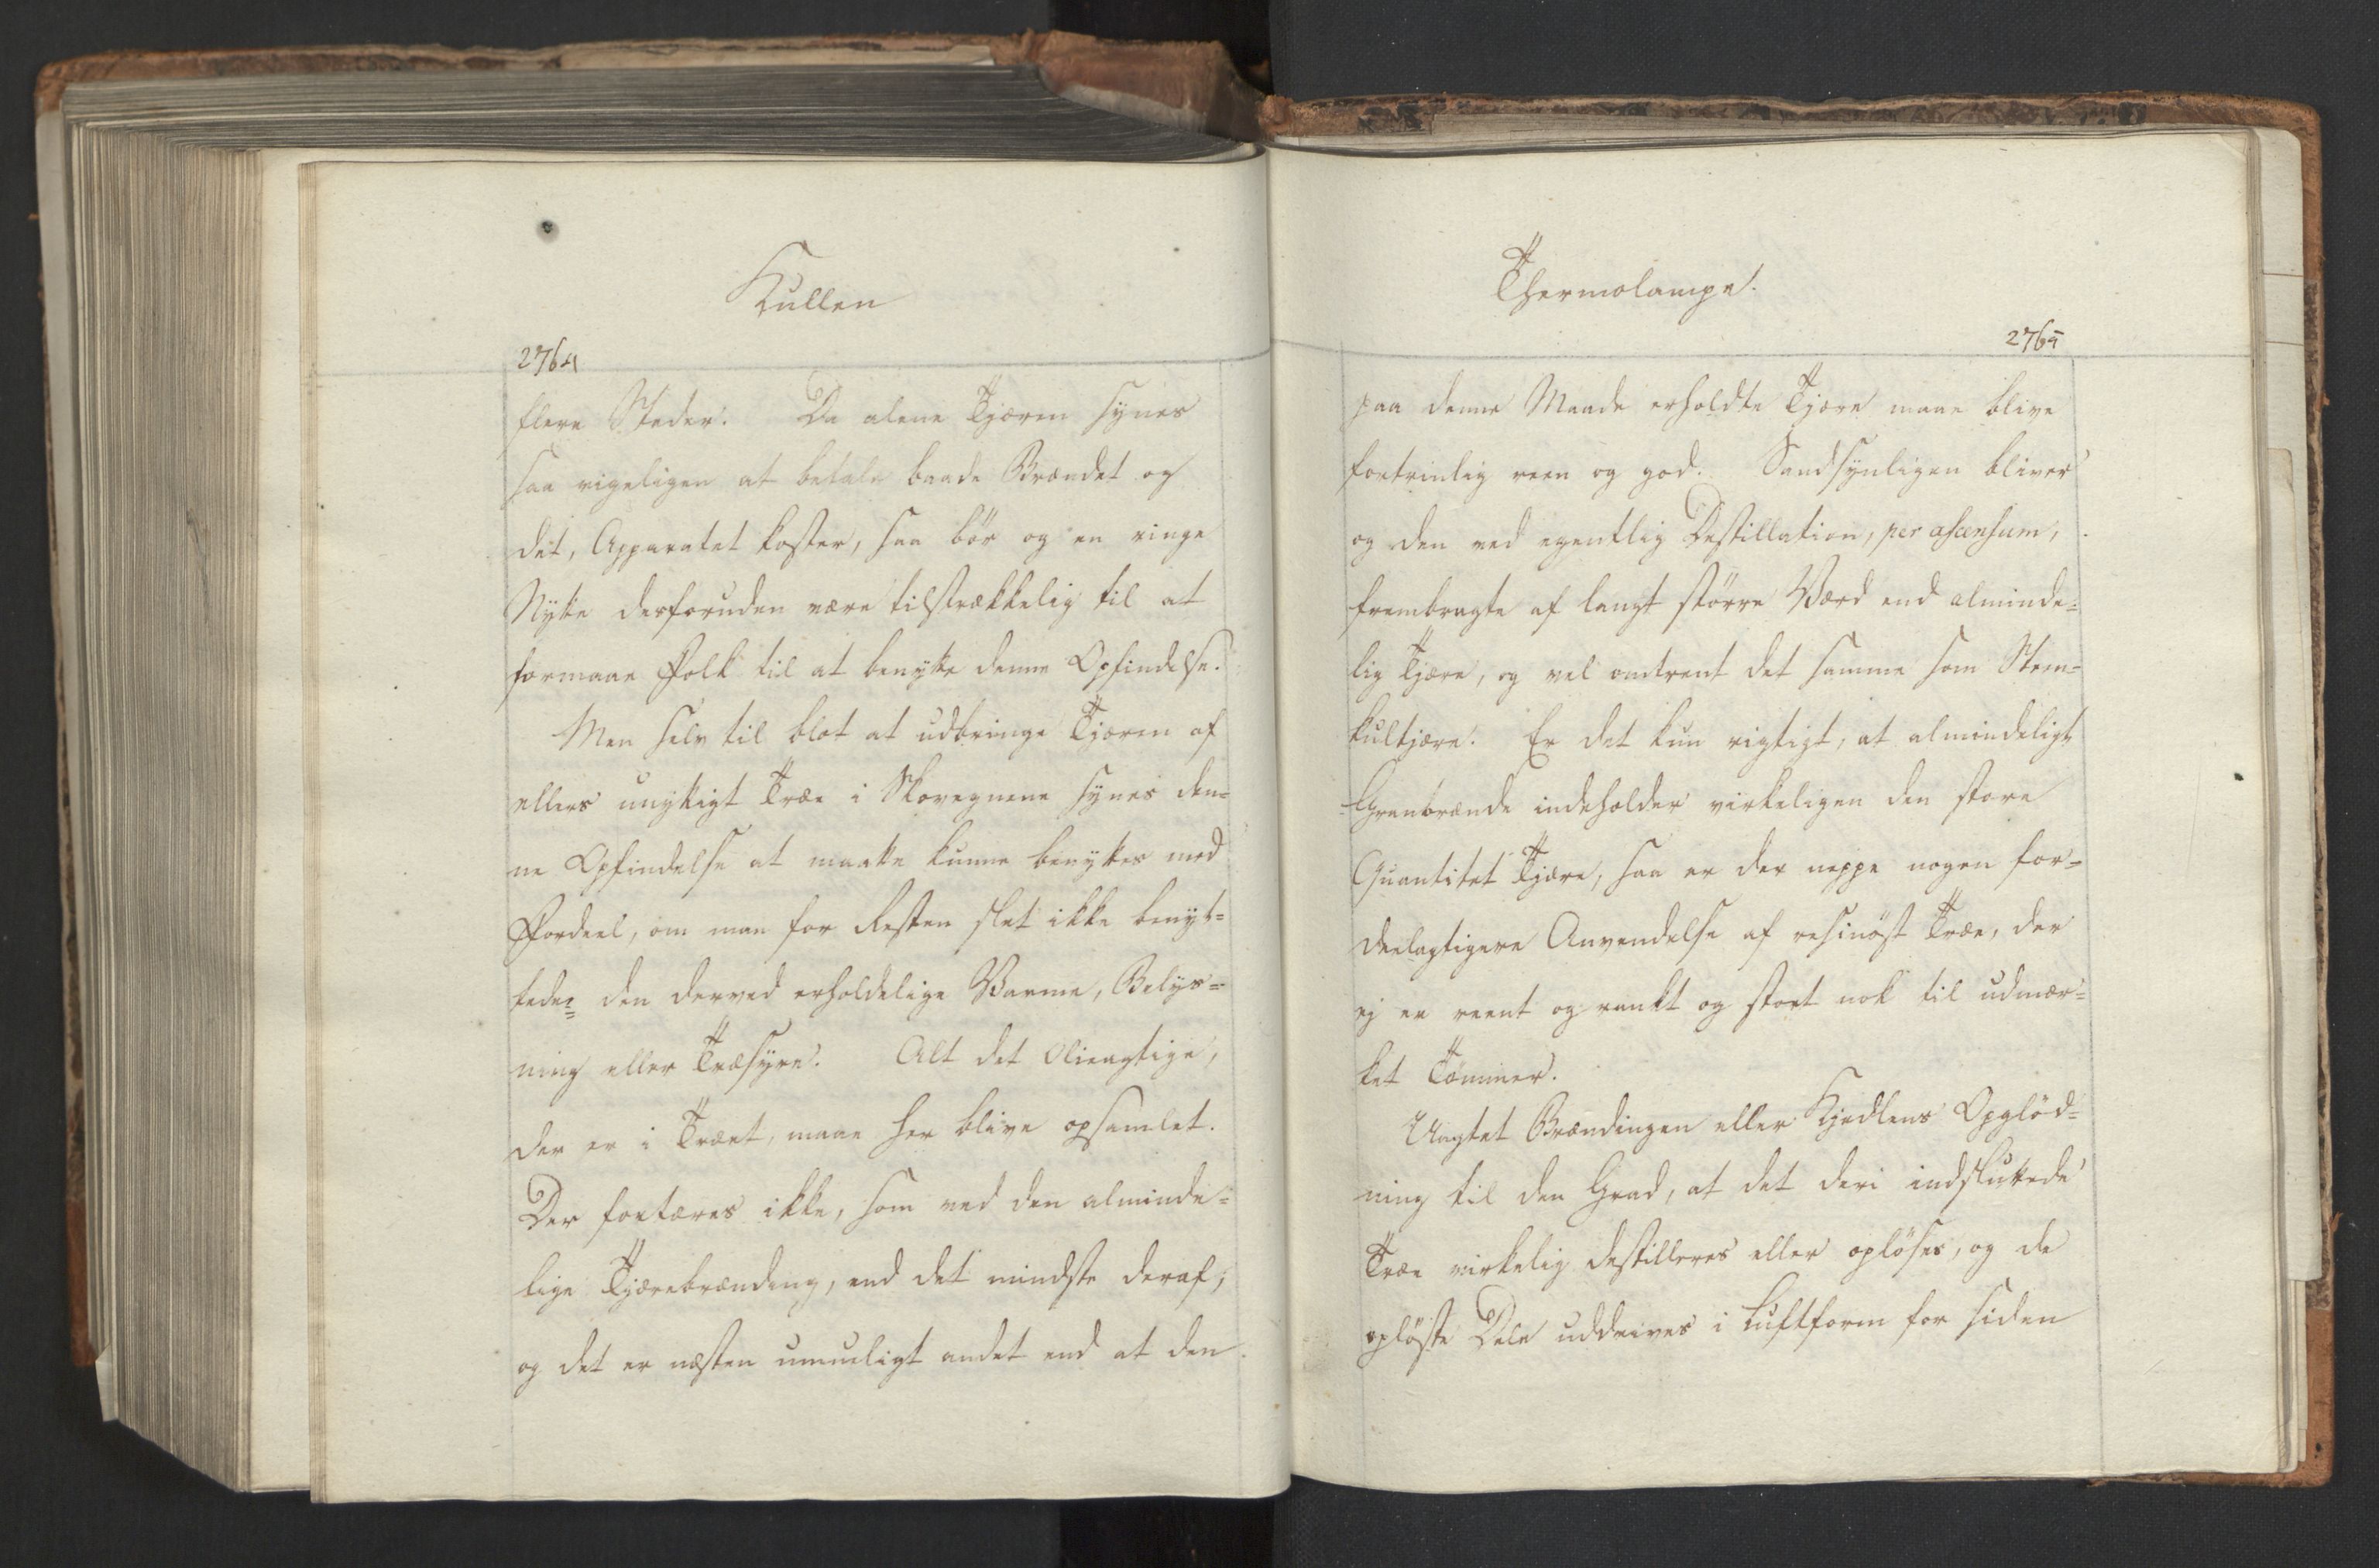 Kullen
2764
flere Steder. Da alene Tjæren synes
saa rigeligen at betale baade Brændet og
det, Apparatet koster, saa bør og en ringe
Nytte desforuden være tilstrækkelig til at
formaae Folk til at benytte denne Opfindelse.
Men selv til blot at udbringe Tjæren af
ellers unyttigt Træe i Skovegnene synes den=
ne Opfindelse at maatte kunne benyttes med
Fordeel, om man for Resten slet ikke benyt=
tede den derved erholdelige Varme, Belys=
ning eller Træsyre. Alt det Olieagtige,
der er i Træet, maae her blive opsamlet.
Der fortæres ikke, som ved den alminde=
lige Tjærebrænding, end det mindste deraf;
og det er næsten umueligt andet end at den
Thermolampe.
2765
paa denne Maade erholdte Tjære maae blive
fortrinlig reen og god. Sandsynligen bliver
og den ved egentlig Destillation, per ascensum,
frembragte af langt større Værd end alminde=
lig Tjære, og vel omtrent det samme som Steen=
kultjære. Er det kun rigtigt, at almindeligt
Granbrænde indeholder virkeligen den store
Quantitet Tjære, saa er der neppe nogen for=
deelagtigere Anvendelse af resinøst Træe, der
ej er reent og rankt og stort nok til udmær=
ket Tømmer.
Uagtet Brændingen eller Kjedlens Opglød=
ning til den Grad, at det deri indsluttede
Træe virkelig destilleres eller opløses, og de
opløste Dele uddrives i Luftform for siden